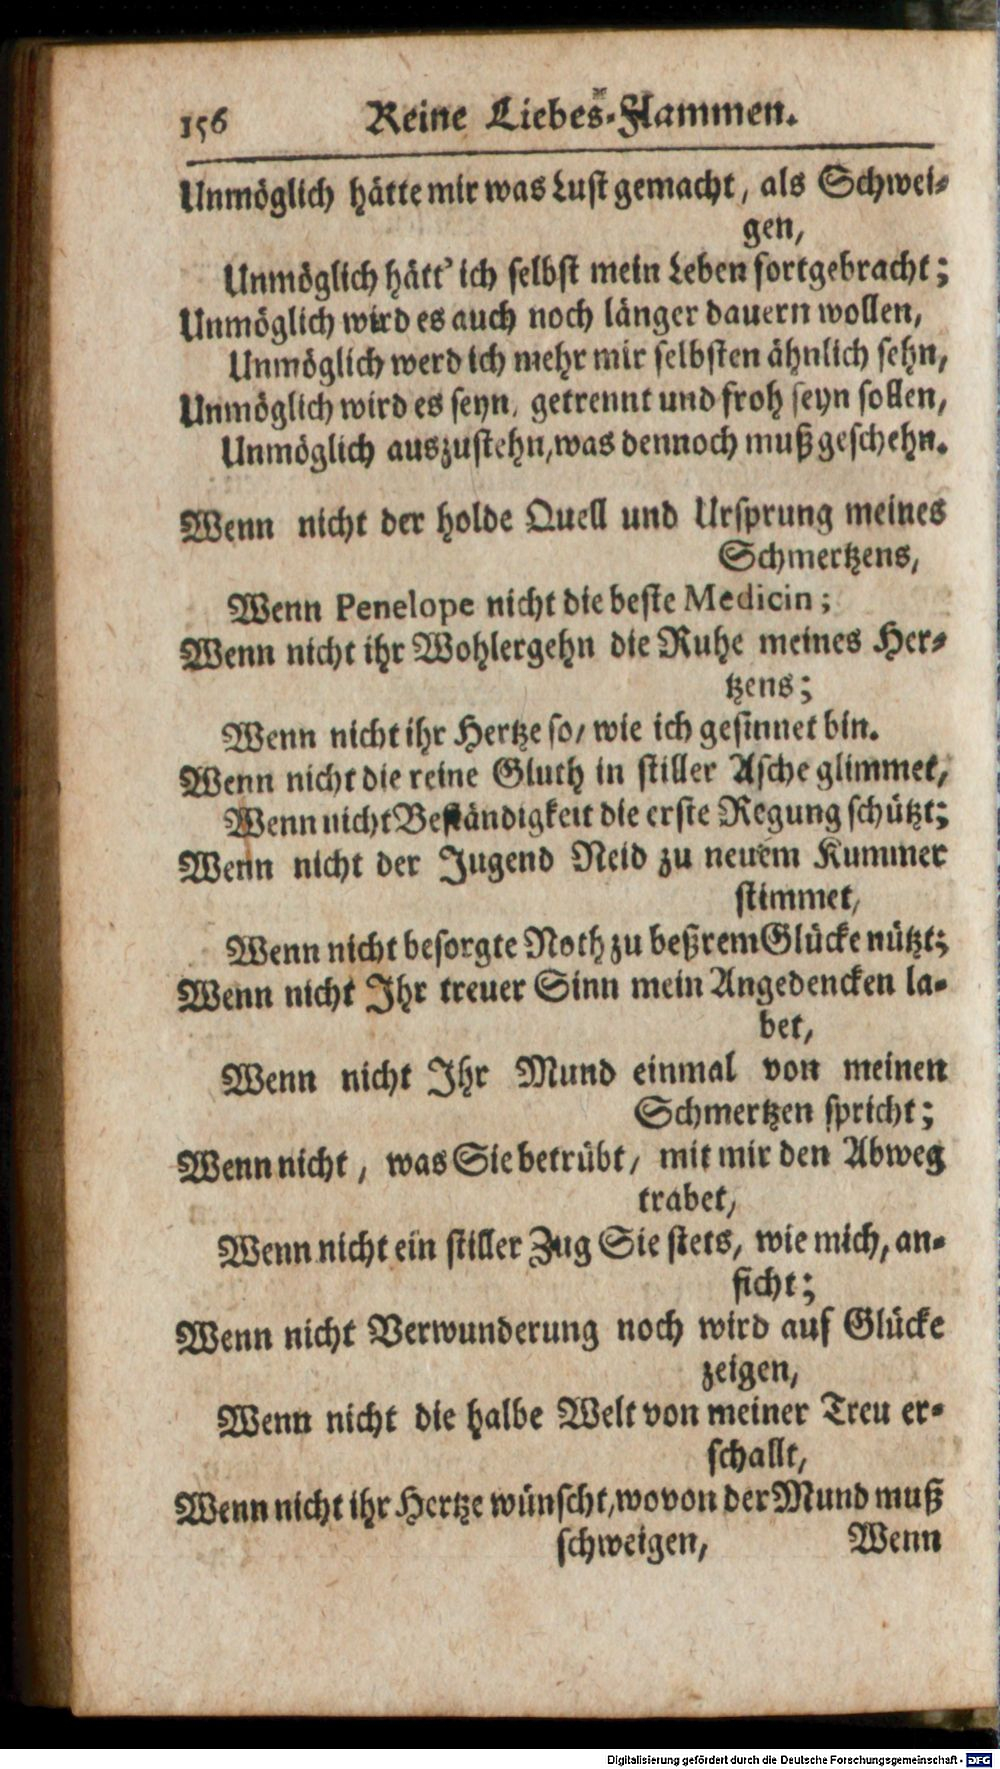 156 Reine Liebes-Flammen.
Unmöglich hätte mir was Lust gemacht, als Schwei-
gen,
Unmöglich hätt' ich selbst mein Leben fortgebracht;
Unmöglich wird es auch noch länger dauern wollen,
Unmöglich werd ich mehr mir selbsten ähnlich sehn,
Unmöglich wird es seyn, getrennt und froh seyn sollen,
Unmöglich auszustehn, was dennoch muß geschehn.
Wenn nicht der holde Quell und Ursprung meines
Schmertzens,
Wenn Penelope nicht die beste Medicin;
Wenn nicht ihr Wohlergehn die Ruhe meines Her-
tzens;
Wenn nicht ihr Hertze so, wie ich gesinnet bin.
Wenn nicht die reine Gluth in stiller Asche glimmet,
Wenn nicht Beständigkeit die erste Regung schützt;
Wenn nicht der Jugend Neid zu neuem Kummer
stimmet,
Wenn nicht besorgte Noth zu beßrem Glücke nützt;
Wenn nicht Ihr treuer Sinn mein Angedencken la-
bet,
Wenn nicht Ihr Mund einmal von meinen
Schmertzen spricht;
Wenn nicht, was Sie betrübt, mit mir den Abweg
trabet,
Wenn nicht ein stiller Zug Sie stets, wie mich, an-
ficht;
Wenn nicht Verwunderung noch wird auf Glücke
zeigen,
Wenn nicht die halbe Welt von meiner Treu er-
schallt,
Wenn nicht ihr Hertze wünscht, wovon der Mund muß
schweigen, Wenn
Digitalisierung gefördert durch die Deutsche Forschungsgemeinschaft - DFG